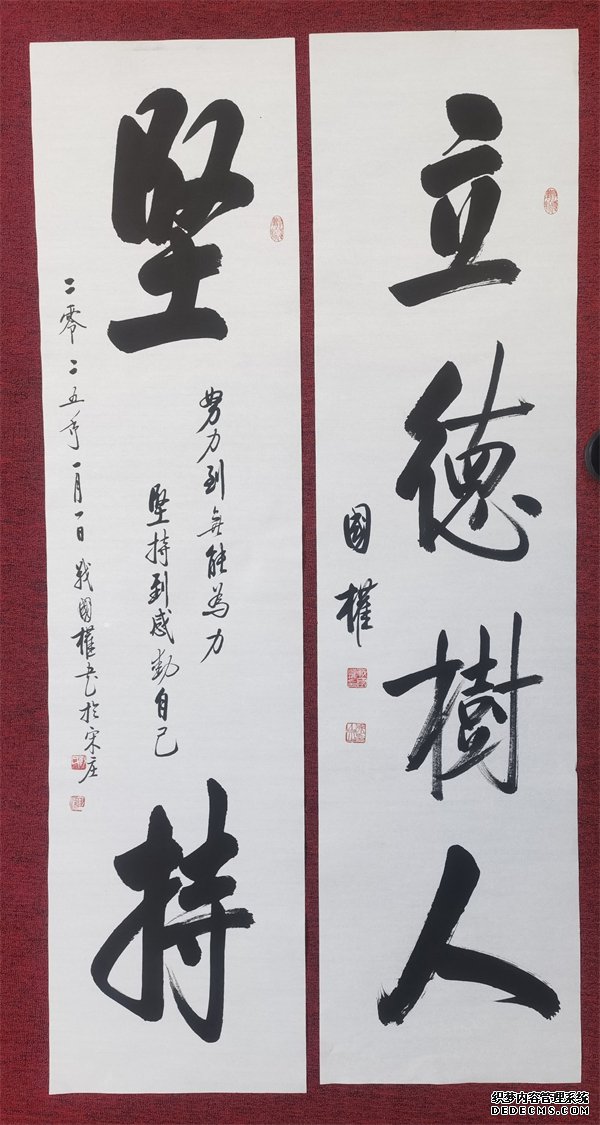 立德樹人
國權
坚
努力到無能為力
坚持到感動自己
持
二零二五年一月一日戰國權书於宋庄
织梦内容管理系统
DEDECMS.COM